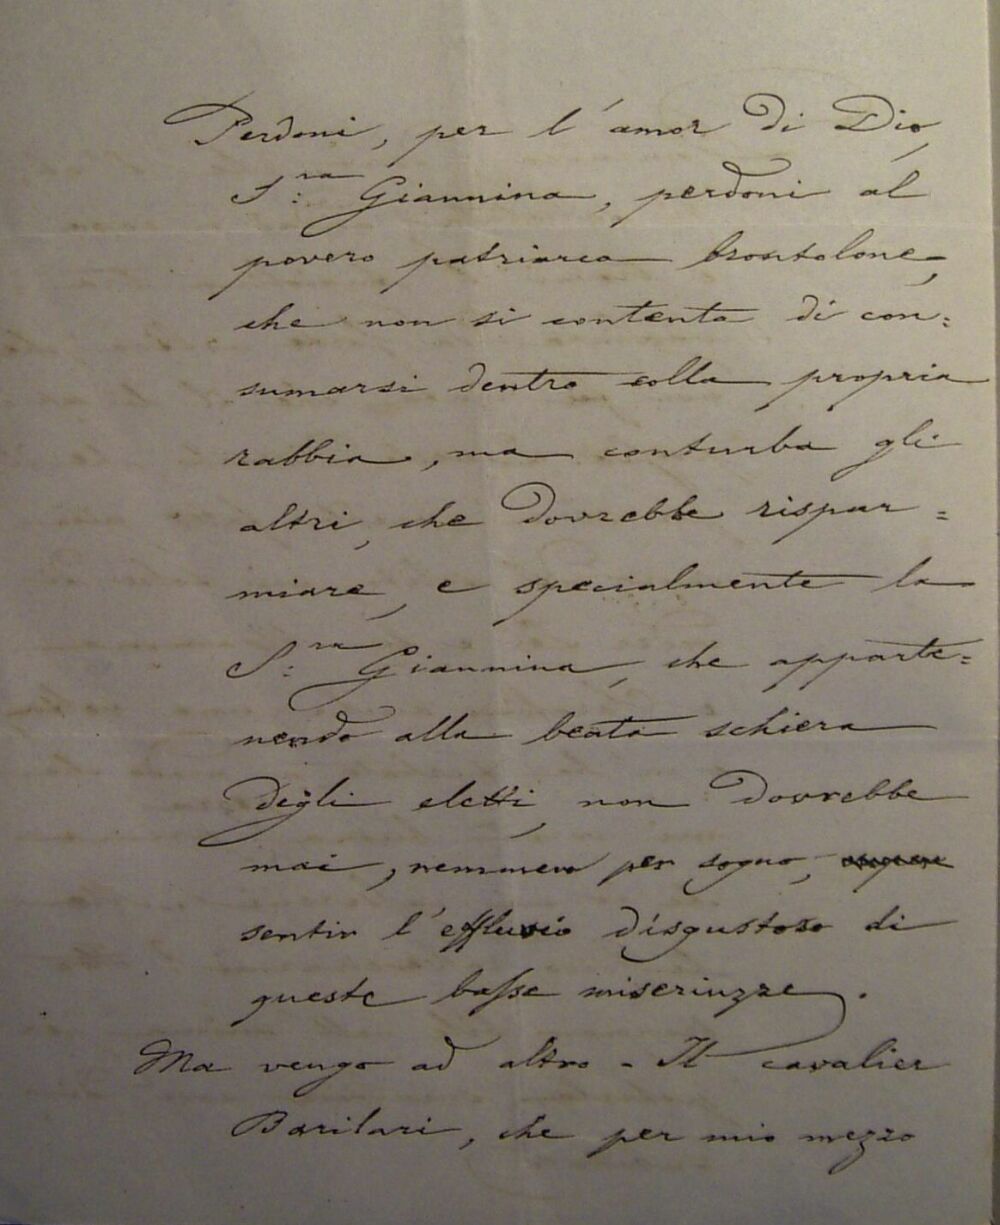 Perdoni, per l'amor di Dio,
S.ra Giannina, perdoni al
povero patriarca brontolone,
che non si contenta di con=
sumarsi dentro colla propria
rabbia, ma conturba gli
altri, che dovrebbe rispar=
miare, e specialmente la
S.ra Giannina, che apparte=
nendo alla beata schiera
degli eletti, non dovrebbe
mai, nemmen per sogno,
sentir l'effluvio disgustoso di
queste basse miseriuzze.
Ma vengo ad altro - Il cavalier
Barilari, che per mio mezzo